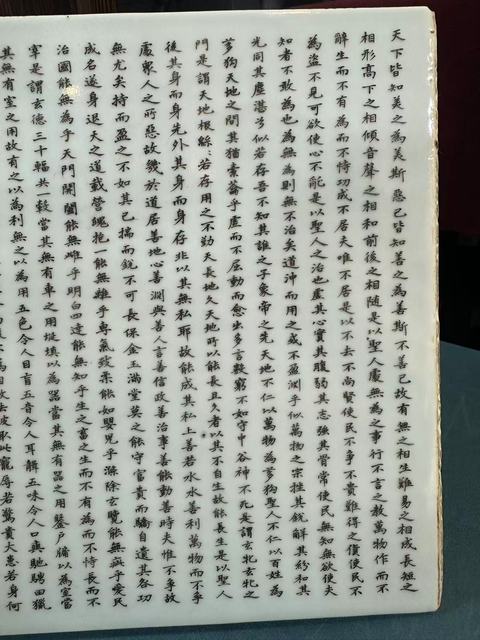 天下皆知美之為美斯惡已皆知善之為善斯不善已故有無之相生難易之相成長短之
相形高下之相傾音聲之相和前後之相隨是以聖人處無為之事行不言之教萬物作而不
辭生而不有為而不恃功成不居夫唯不居是以不去不尚賢使民不爭不貴難得之貨使民不
為盜不見可欲使心不亂是以聖人之治也虛其心實其腹弱其志強其骨常使民無知無欲使夫
知者不敢為也為無為則無不治矣道沖而用之或不盈淵乎似萬物之宗挫其銳解其紛和其
光同其塵湛兮似若存吾不知其誰之子象帝之先天地不仁以萬物為芻狗聖人不仁以百姓為
芻狗天地之間其猶橐籥乎虛而不屈動而愈出多言數窮不如守中谷神不死是謂玄牝玄牝之
門是謂天地根綿綿若存用之不勤天長地久天地所以能長且久者以其不自生故能長生是以聖人
後其身而身先外其身而身存非以其無私耶故能成其私上善若水水善利萬物而不爭
處眾人之所惡故幾於道居善地心善淵與善人言善信政善治事善能動善時夫惟不爭故
無尤矣持而盈之不如其已揣而銳不可長保金玉滿堂莫之能守富貴而驕自遺其咎功
成名遂身退天之道載營魄抱一能無離乎專氣致柔能如嬰兒乎滌除玄覽能無疵乎愛民
治國能無為乎天門開闔能無雌乎明白四達能無知乎生之畜之生而不有為而不恃長而不
宰是謂玄德三十輻共一轂當其無有車之用埏埴以為器當其無有器之用鑿戶牖以為室當
其無有室之用故有之以為利無之以為用五色令人目盲五音令人耳聾五味令人口爽馳騁田獵
故去彼取此寵辱若驚貴大患若身何